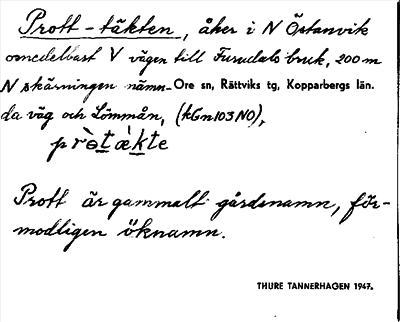 Prott-täkten, åker i N Östanvik
omedelbart V vägen till Furudals bruk, 200 m
N skärningen nämn- Ore sn, Rättviks tg, Kopparbergs län.
da väg och Lömmån, (kGn103NO),
prὲtækte
Prott är gammalt gårdsnamn, för-
modligen öknamn.
THURE TANNERHAGEN 1947.